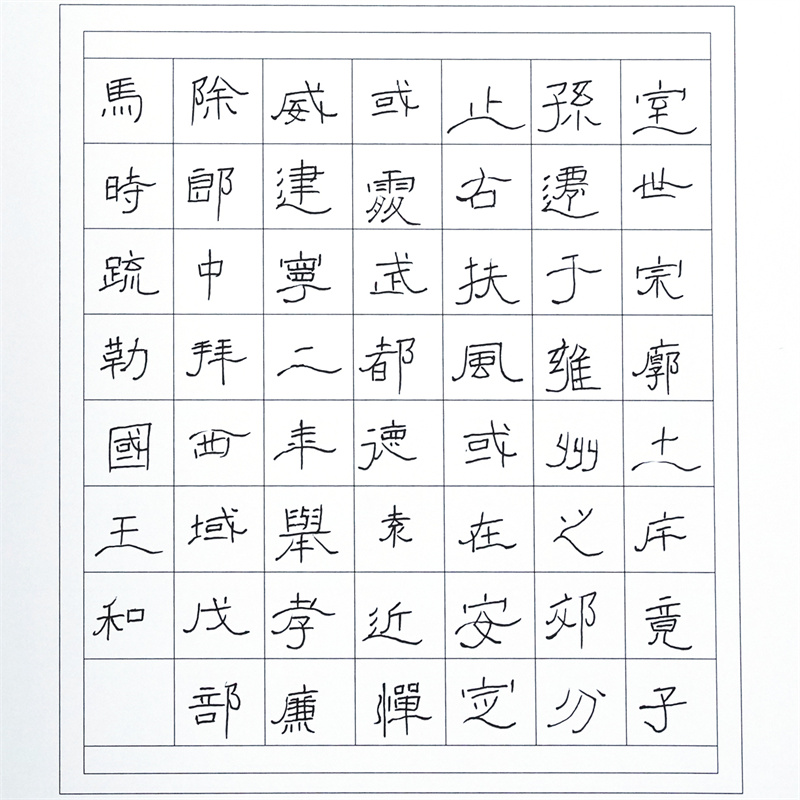 室世宗廓土斥竟子
孫遷于雍州之郊分
止右扶風或在安定
或武都德素近憚
威建寧二年舉孝廉
除郎中拜西域戊部
馬時疏勒國王和